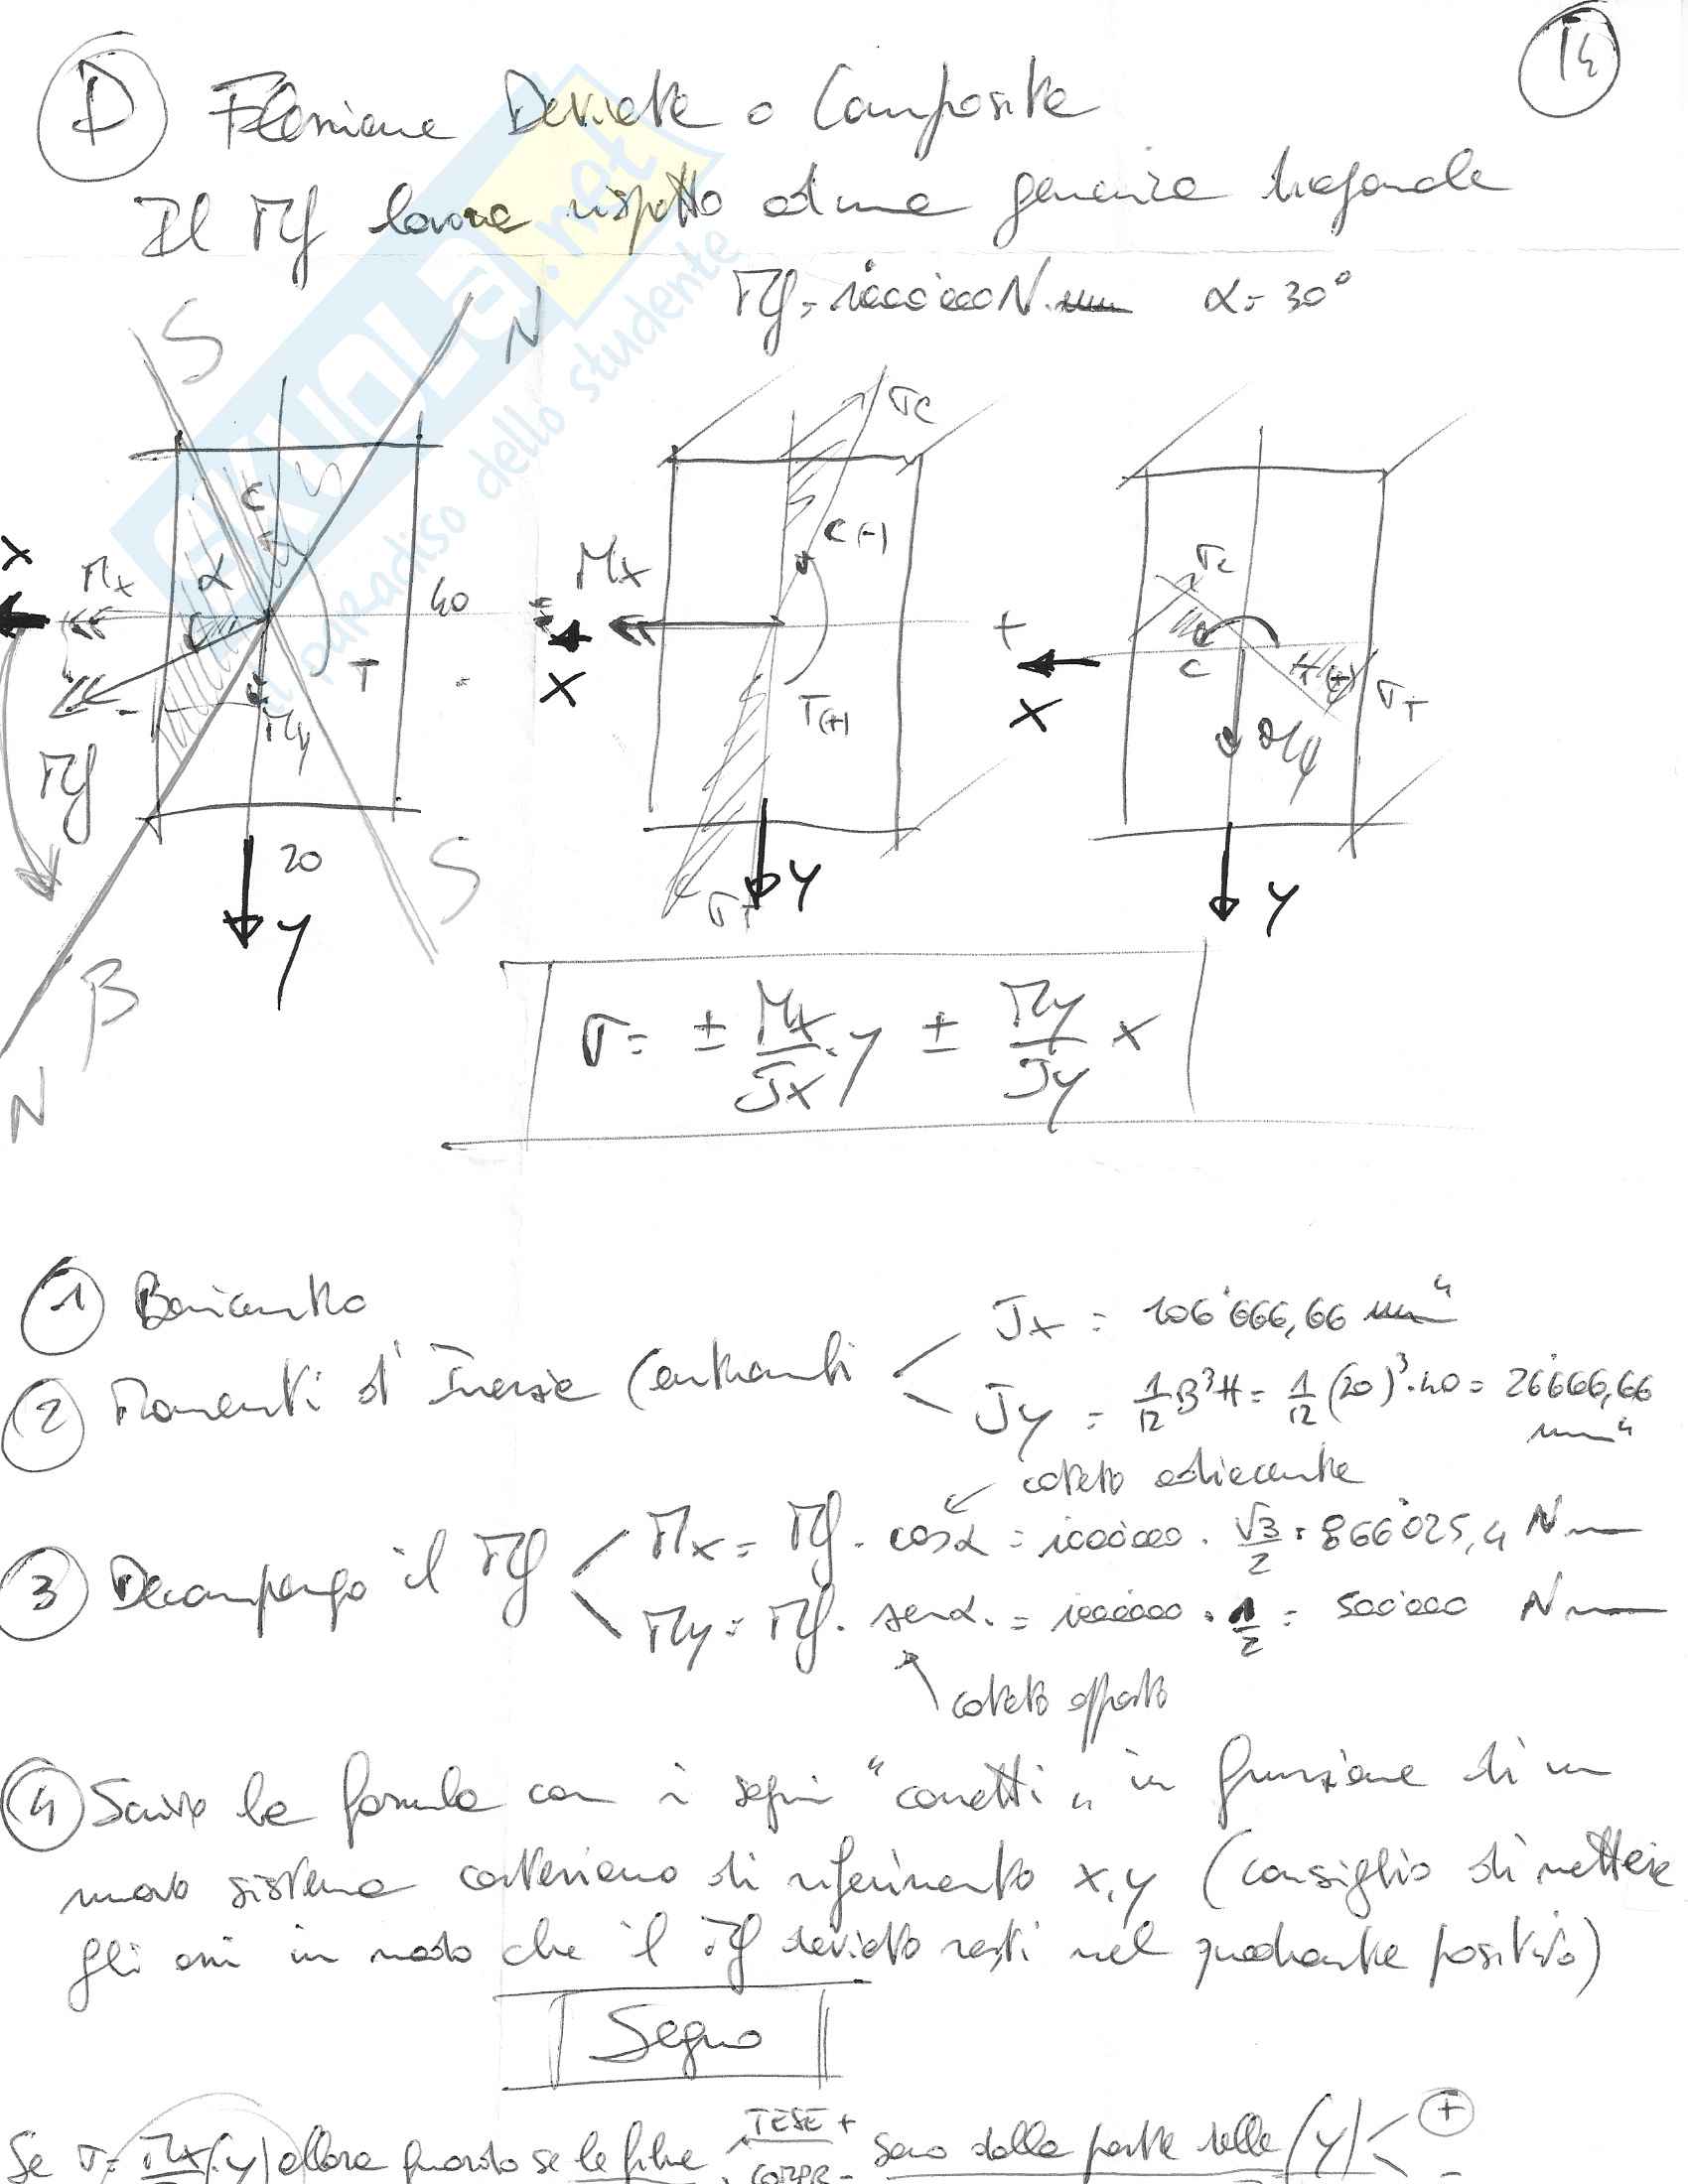 D Flessione Deviata o Composita
14
Il Mf lavora rispetto ad una generica diagonale
Mf = 1000'000 N·mm α = 30°
SKUOLA.net
il paradiso dello studente
S N
σc
C
C(-)
σc
X Mx α 40
Mx
+
X
X
T
T(+)
C
(+) σT
My
My
Mf
20
S
σT
Y
Y
Y
β
N
σ = ± Mx/Jx · y ± My/Jy x
1 Baricentro
Jx = 106'666,66 mm⁴
2 Momenti d'Inerzia Centranti
Jy = 1/12 B³H = 1/12 (20)³·40 = 26'666,66 mm⁴
cateto adiacente
3 Decompongo il Mf
Mx = Mf · cosα = 1000'000 · √3/2 = 866'025,4 Nmm
My = Mf · senα = 1000000 · 1/2 = 500'000 Nmm
cateto opposto
4 Scrivo la formula con i segni "corretti" in funzione di un
nuovo sistema cartesiano di riferimento x,y (consiglio di mettere
gli assi in modo che il Mf deviato resti nel quadrante positivo)
Segno
Se σ = Mx (y) allora guardo se le fibre TESE + COMPR - sono dalla parte delle (y) +